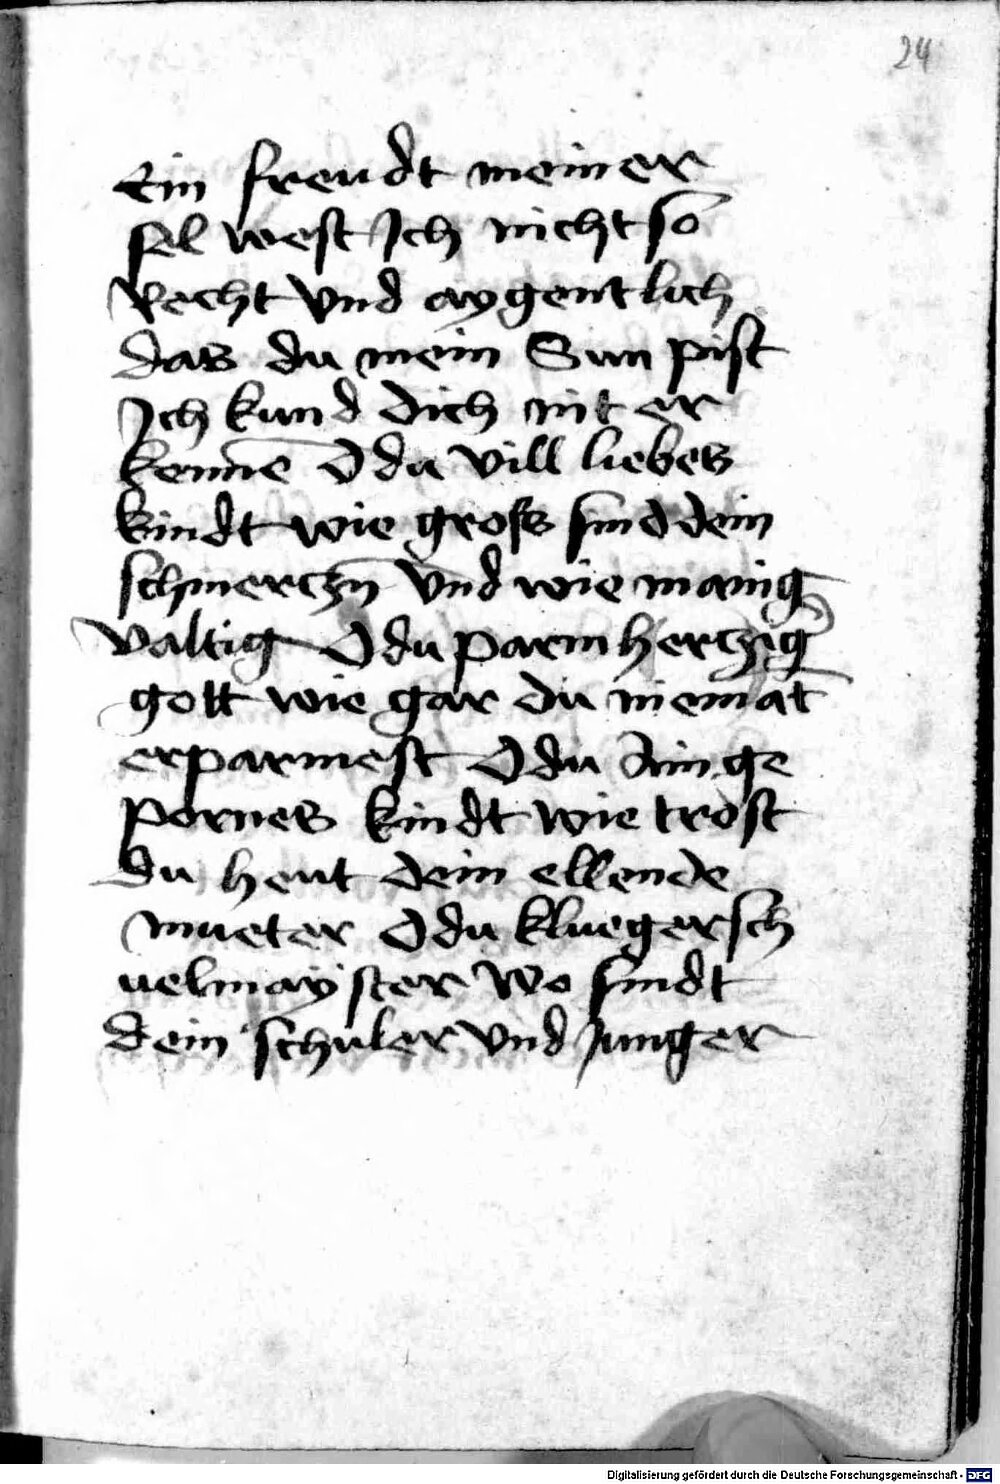 24
Ein freudt meiner
sel west Ich nicht so
Recht vnd aygentlich
das du mein Sun pist
Ich kund dich nit er
kenne͂ O du vill liebes
kindt wie gross sind dein
schmertzn̄ vnd wie manig
valtig O du parmhertzig͛
gott wie gar du niemāt
erparmest O du Ainge
pornes kindt wie trost
du heut dein ellende
mueter O du kluegersch
uelmayster wo sindt
dein schuler vnd Junger
Digitalisierung gefördert durch die Deutsche Forschungsgemeinschaft - DFG